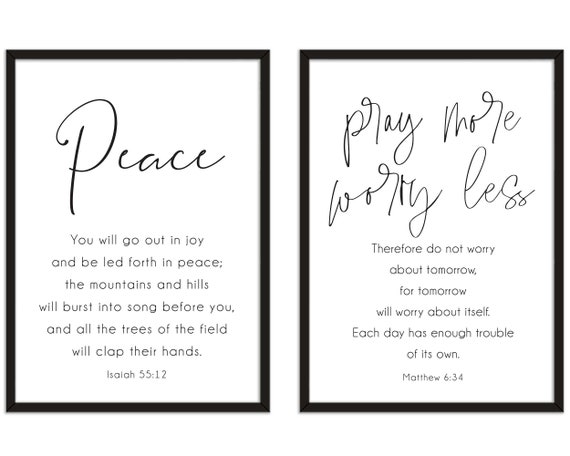 Peace
You will go out in joy
and be led forth in peace;
the mountains and hills
will burst into song before you,
and all the trees of the field
will clap their hands.
Isaiah 55:12
pray more
worry less
Therefore do not worry
about tomorrow,
for tomorrow
will worry about itself.
Each day has enough trouble
of its own.
Matthew 6:34